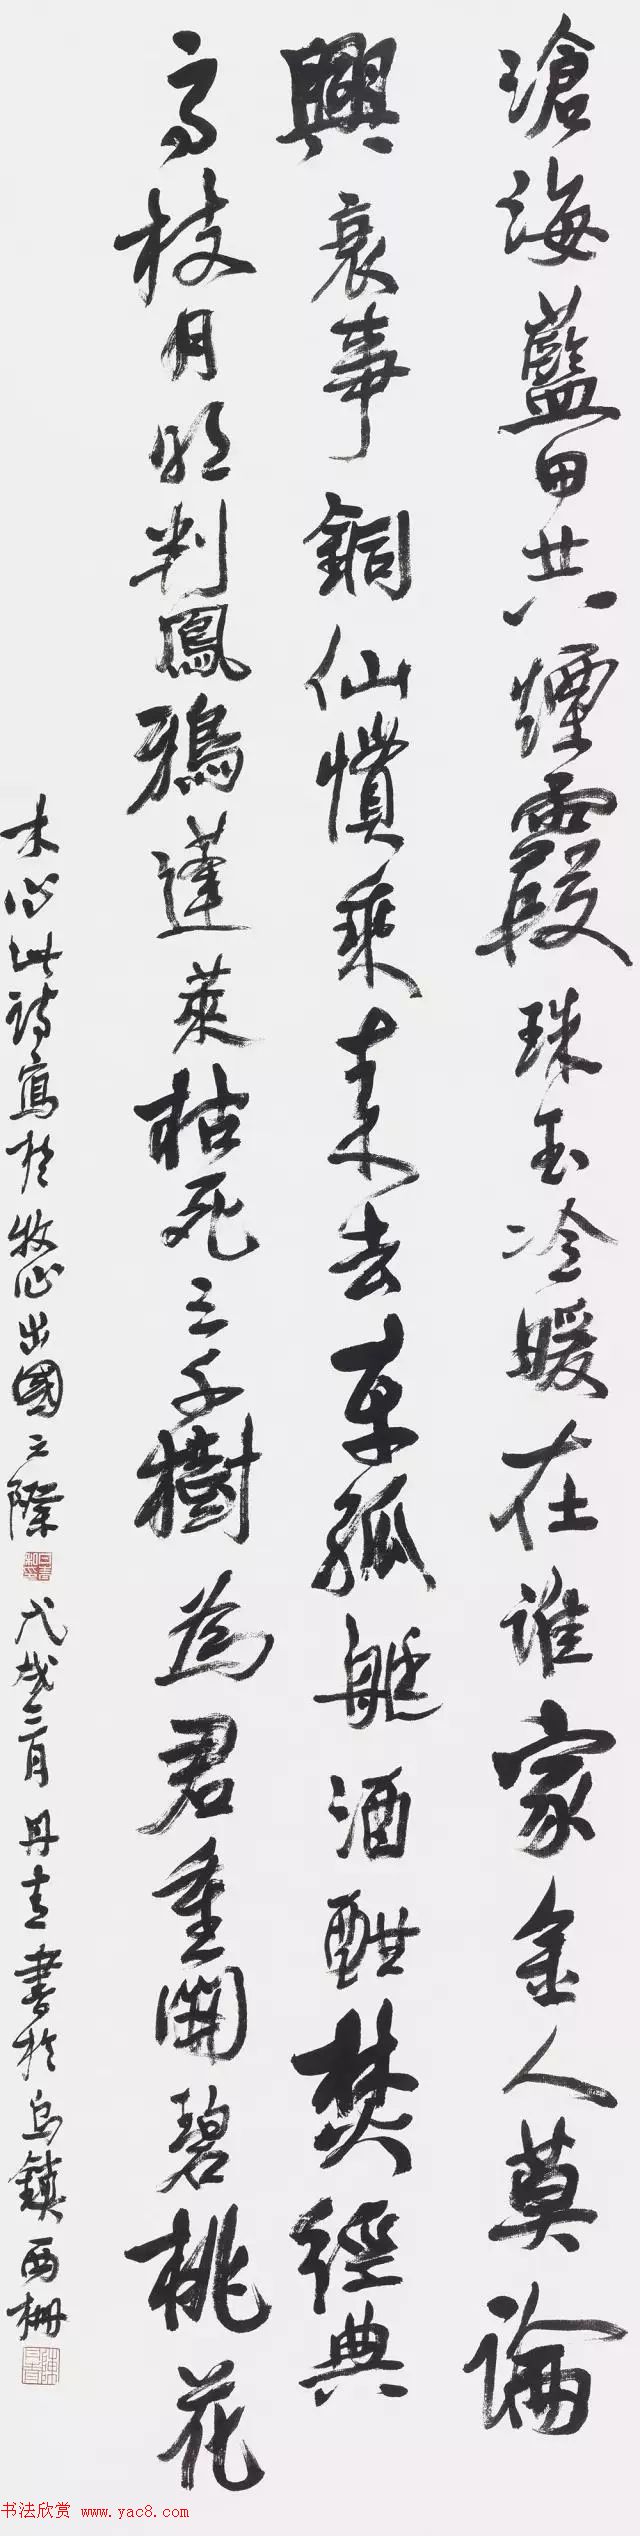 滄海藍田共煙霞珠玉冷暖在谁家金人莫論
興衰事銅仙慣乘来去車孤艇酒酣焚經典
高枝月明判鳳鴉蓬萊枯死三千樹為君重開碧桃花
木心此詩寫於牧心出國之際 戊戌三月丹青書於烏鎮西柵
书法欣赏 www.yac8.com